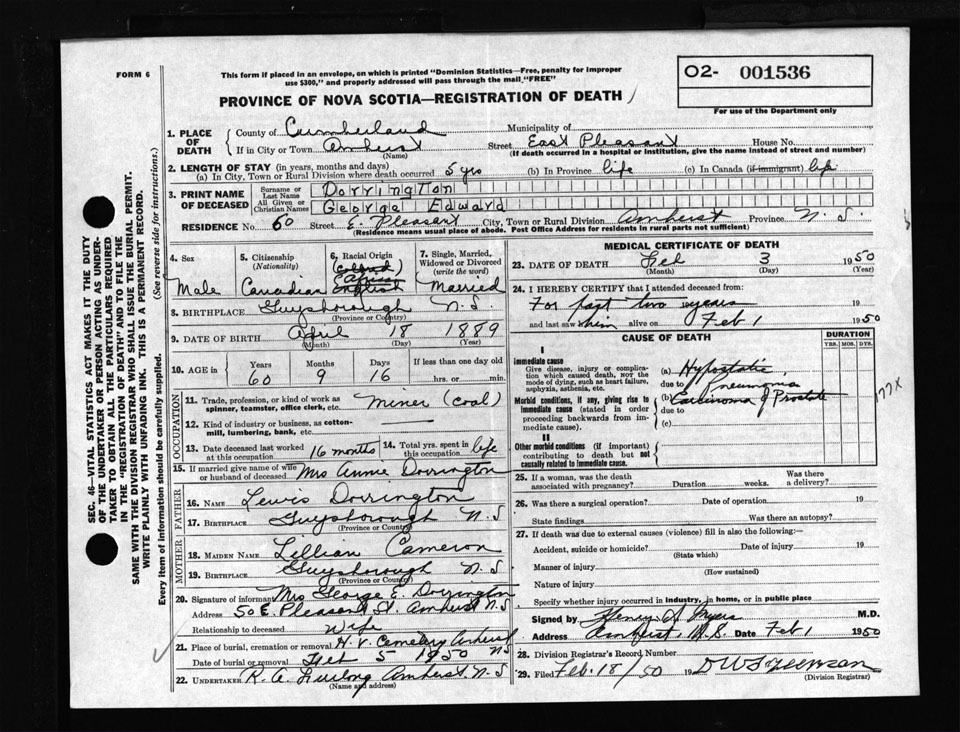 FORM 6
This form if placed in an envelope, on which is printed "Dominion Statistics—Free, penalty for improper
use $300," and properly addressed will pass through the mail "FREE"
O2- 001536
For use of the Department only
PROVINCE OF NOVA SCOTIA—REGISTRATION OF DEATH
1. PLACE OF DEATH
County of Cumberland Municipality of
If in City or Town Amherst Street East Pleasant House No.
(Name) (If death occurred in a hospital or institution, give the name instead of street and number)
2. LENGTH OF STAY (in years, months and days)
(a) In City, Town or Rural Division where death occurred 5 yrs (b) In Province life (c) In Canada (if immigrant) life
3. PRINT NAME OF DECEASED
Surname or Last Name Dorrington
All Given or Christian Names George Edward
RESIDENCE No. 60 Street E. Pleasant City, Town or Rural Division Amherst Province N. S.
(Residence means usual place of abode. Post Office Address for residents in rural parts not sufficient)
4. Sex
Male
5. Citizenship (Nationality)
Canadian
6. Racial Origin
(Colored)
African
English
7. Single, Married, Widowed or Divorced (write the word)
Married
8. BIRTHPLACE Guysborough N. S.
(Province or Country)
9. DATE OF BIRTH April 18 1889
(Month) (Day) (Year)
10. AGE in
Years Months Days If less than one day old
60 9 16 hrs. or min.
OCCUPATION
11. Trade, profession, or kind of work as spinner, teamster, office clerk, etc. Miner (coal)
12. Kind of industry or business, as cotton-mill, lumbering, bank, etc.
13. Date deceased last worked at this occupation 16 months
14. Total yrs. spent in this occupation life
15. If married give name of wife or husband of deceased Mrs Annie Dorrington
FATHER
16. NAME Lewis Dorrington
17. BIRTHPLACE Guysborough N. S
(Province or Country)
MOTHER
18. MAIDEN NAME Lillian Cameron
19. BIRTHPLACE Guysborough N. S
(Province or Country)
20. Signature of informant Mrs George E. Dorrington
Address 50 E. Pleasant St. Amherst N. S
Relationship to deceased Wife
21. Place of burial, cremation or removal H. V. Cemetery Amherst NS
Date of burial or removal Feb 5 1950
22. UNDERTAKER R. A. Furlong Amherst N. S
(Name and address)
MEDICAL CERTIFICATE OF DEATH
23. DATE OF DEATH Feb 3 1950
(Month) (Day) (Year)
24. I HEREBY CERTIFY that I attended deceased from:
For past two years 19
and last saw him alive on Feb 1 1950
CAUSE OF DEATH
DURATION
YRS. MOS. DYS.
I
Immediate cause
Give disease, injury or complication which caused death, not the mode of dying, such as heart failure, asphyxia, asthenia, etc.
(a) Hypostatic
due to Pneumonia
Morbid conditions, if any, giving rise to immediate cause (stated in order proceeding backwards from immediate cause).
(b) Carcinoma of Prostate
due to
(c)
II
Other morbid conditions (if important) contributing to death but not causally related to immediate cause.
177X
25. If a woman, was the death associated with pregnancy? Duration weeks. Was there a delivery?
26. Was there a surgical operation? Date of operation 19
State findings Was there an autopsy?
27. If death was due to external causes (violence) fill in also the following:—
Accident, suicide or homicide? Date of injury 19
(State which)
Manner of injury
(How sustained)
Nature of injury
Specify whether injury occurred in industry, in home, or in public place
Signed by Henry S Myers M.D.
Address Amherst, N. S. Date Feb 1 1950
28. Division Registrar's Record Number
29. Filed Feb. 18/50 19
(Division Registrar)
SEC. 46—VITAL STATISTICS ACT MAKES IT THE DUTY
OF THE UNDERTAKER OR PERSON ACTING AS UNDER-
TAKER TO OBTAIN ALL THE PARTICULARS REQUIRED
IN THE "REGISTRATION OF DEATH" AND TO FILE THE
SAME WITH THE DIVISION REGISTRAR WHO SHALL ISSUE THE BURIAL PERMIT.
WRITE PLAINLY WITH UNFADING INK. THIS IS A PERMANENT RECORD.
Every item of information should be carefully supplied. (See reverse side for instructions.)